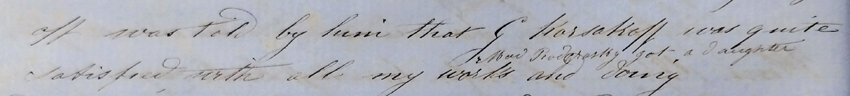 off was told by him that G Korsakoff was quite
Mad Piodorosky got a daughter
satisfied with all my works and doing